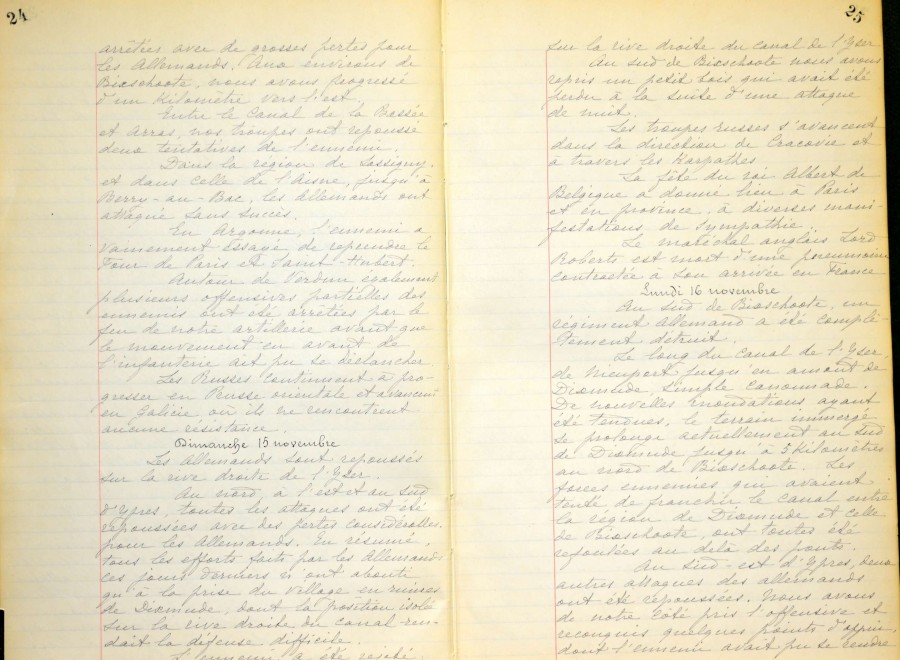 24
arrêtées avec de grosses pertes pour
les Allemands. Aux environs de
Bixschoote, nous avons progressé
d'un kilomètre vers l'est.
Entre le Canal de la Bassée
et Arras, nos troupes ont repoussé
deux tentatives de l'ennemi.
Dans la région de Lassigny,
et dans celle de l'Aisne, jusqu'à
Berry-au-Bac, les Allemands ont
attaqué sans succès.
En Argonne, l'ennemi a
vainement essayé de reprendre le
Four de Paris et Saint-Hubert.
Autour de Verdun également
plusieurs offensives partielles des
ennemis ont été arrêtées par le
feu de notre artillerie avant que
le mouvement en avant de
l'infanterie ait pu se déclancher.
Les Russes continuent à pro-
gresser en Prusse orientale et avancent
en Galicie où ils ne rencontrent
aucune résistance.
Dimanche 15 novembre
Les Allemands sont repoussés
sur la rive droite de l'Yser.
Au nord, à l'est et au sud
d'Ypres, toutes les attaques ont été
repoussées avec des pertes considérables
pour les Allemands. En résumé,
tous les efforts faits par les Allemands
ces jours derniers n'ont abouti
qu'à la prise du village en ruines
de Dixmude, dont la position isolée
sur la rive droite du canal ren-
dait la défense difficile.
L'ennemi a été rejeté
25
sur la rive droite du canal de l'Yser
Au sud de Bixschoote nous avons
repris un petit bois qui avait été
perdu à la suite d'une attaque
de nuit.
Les troupes russes s'avancent
dans la direction de Cracovie et
à travers les Karpathes
La fête du roi Albert de
Belgique a donné lieu à Paris
et en province, à diverses mani-
festations de sympathie.
Le maréchal anglais Lord
Roberts est mort d'une pneumonie
contractée à son arrivée en France
Lundi 16 novembre
Au sud de Bixschoote, un
régiment allemand a été complè-
tement détruit.
Le long du canal de l'Yser,
de Nieuport jusqu'en amont de
Dixmude, simple canonnade.
De nouvelles inondations ayant
été tendues, le terrain immergé
se prolonge actuellement au sud
de Dixmude jusqu'à 5 kilomètres
au nord de Bixschoote. Les
forces ennemies qui avaient
tenté de franchir le canal entre
la région de Dixmude et celle
de Bixschoote, ont toutes été
refoulées au delà des ponts.
Au sud-est d'Ypres, deux
autres attaques des allemands
ont été repoussées. Nous avons
de notre côté pris l'offensive et
reconquis quelques points d'appui
dont l'ennemi avait pu se rendre